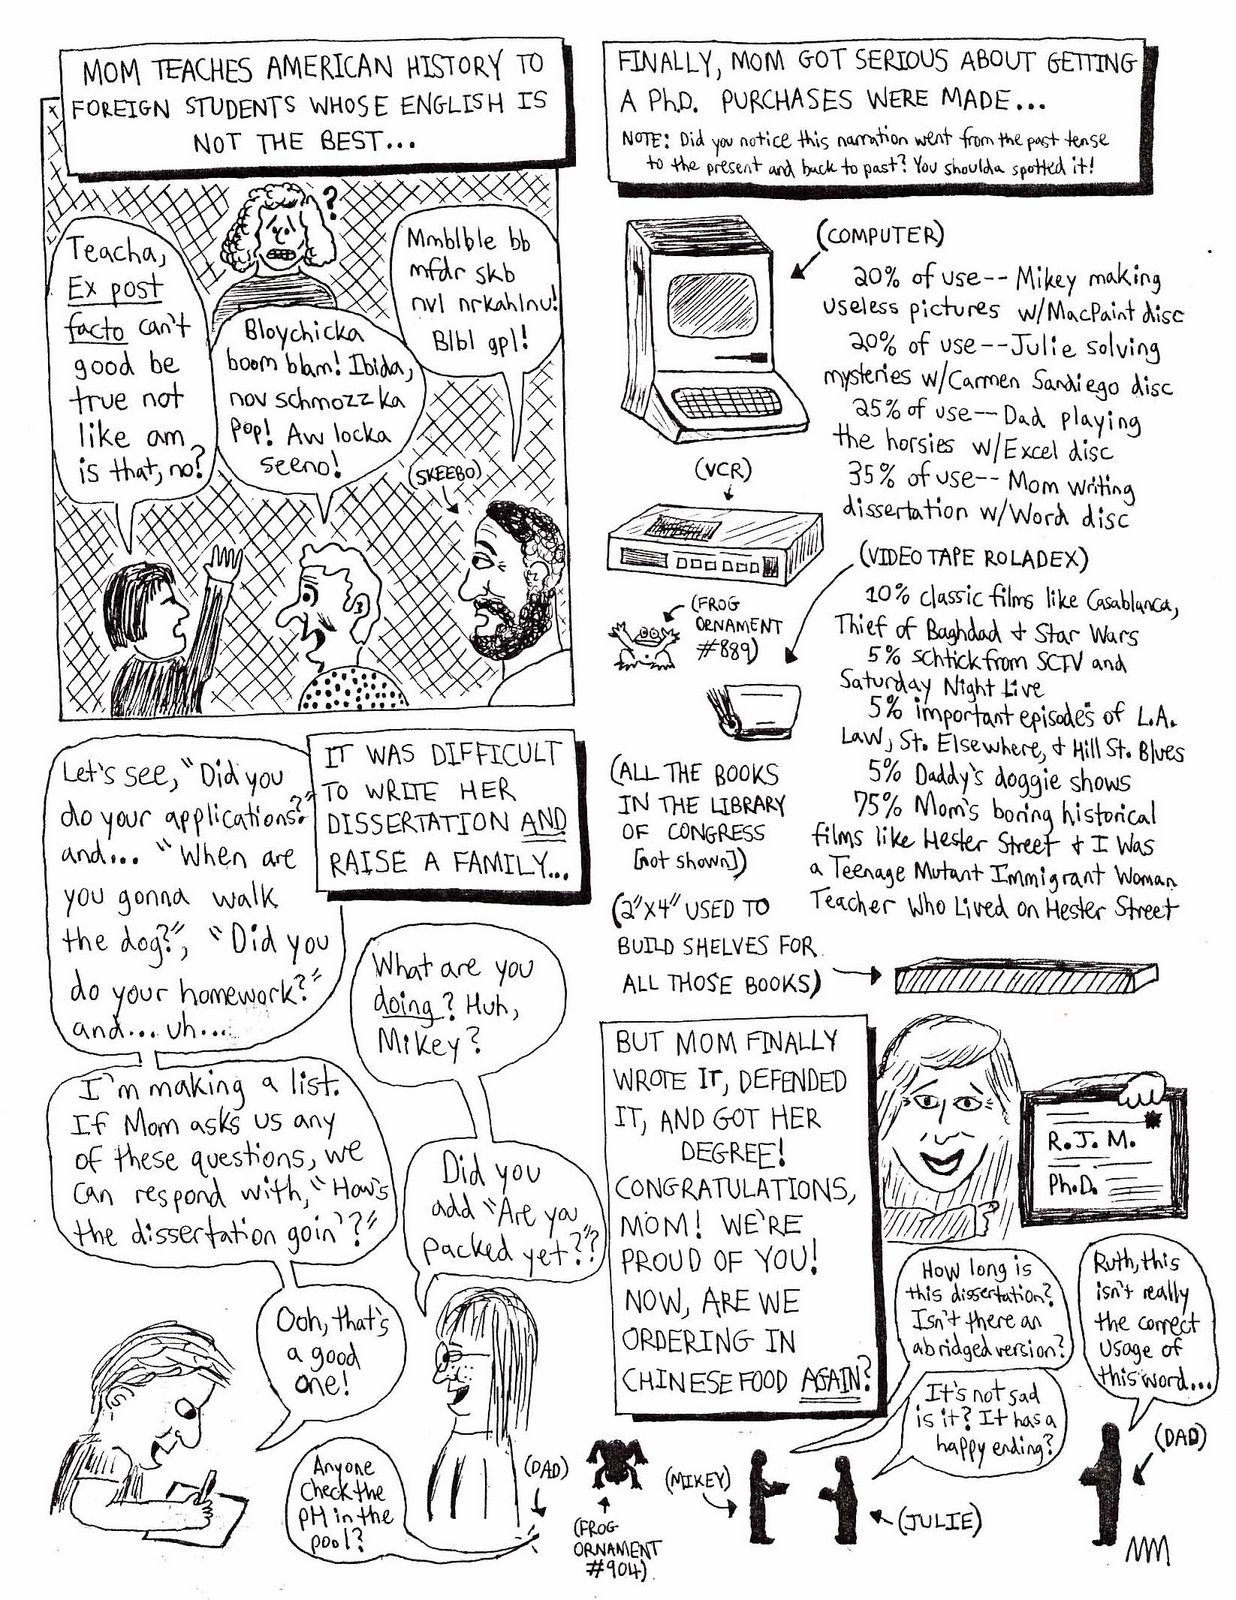 MOM TEACHES AMERICAN HISTORY TO
FOREIGN STUDENTS WHOSE ENGLISH IS
NOT THE BEST...
?
Teacha,
Ex post
facto can't
good be
true not
like am
is that, no?
Bloychicka
boom blam! Ibida,
nov schmozzka
Pop! Aw locka
seeno!
Mmblble bb
mfdr skb
nvl nrkahlnv!
Blbl gpl!
(SKEEBO)
IT WAS DIFFICULT
TO WRITE HER
DISSERTATION AND
RAISE A FAMILY...
Let's see, "Did you
do your applications?"
and... "When are
you gonna walk
the dog?", "Did you
do your homework?"
and... uh...
I'm making a list.
If Mom asks us any
of these questions, we
can respond with, "How's
the dissertation goin'?"
What are you
doing? Huh,
Mikey?
Did you
add "Are you
packed yet?"?
Ooh, that's
a good
one!
Anyone
check the
pH in the
pool?
(DAD)
(FROG
ORNAMENT
#904)
FINALLY, MOM GOT SERIOUS ABOUT GETTING
A PhD. PURCHASES WERE MADE...
NOTE: Did you notice this narration went from the past tense
to the present and back to past? You shoulda spotted it!
(COMPUTER)
20% of use-- Mikey making
useless pictures w/MacPaint disc
20% of use--Julie solving
mysteries w/Carmen Sandiego disc
25% of use-- Dad playing
the horsies w/Excel disc
35% of use-- Mom writing
dissertation w/Word disc
(VCR)
(FROG
ORNAMENT
#889)
(VIDEO TAPE ROLADEX)
10% classic films like Casablanca,
Thief of Baghdad + Star Wars
5% schtick from SCTV and
Saturday Night Live
5% important episodes of L.A.
Law, St. Elsewhere, + Hill St. Blues
5% Daddy's doggie shows
75% Mom's boring historical
films like Hester Street + I Was
a Teenage Mutant Immigrant Woman
Teacher Who Lived on Hester Street
(ALL THE BOOKS
IN THE LIBRARY
OF CONGRESS
[not shown])
(2"X4" USED TO
BUILD SHELVES FOR
ALL THOSE BOOKS)
BUT MOM FINALLY
WROTE IT, DEFENDED
IT, AND GOT HER
DEGREE!
CONGRATULATIONS,
MOM! WE'RE
PROUD OF YOU!
NOW, ARE WE
ORDERING IN
CHINESE FOOD AGAIN?
R.J.M.
Ph.D.
How long is
this dissertation?
Isn't there an
abridged version?
It's not sad
is it? It has a
happy ending?
Ruth, this
isn't really
the correct
usage of
this word...
(MIKEY)
(JULIE)
(DAD)
MM